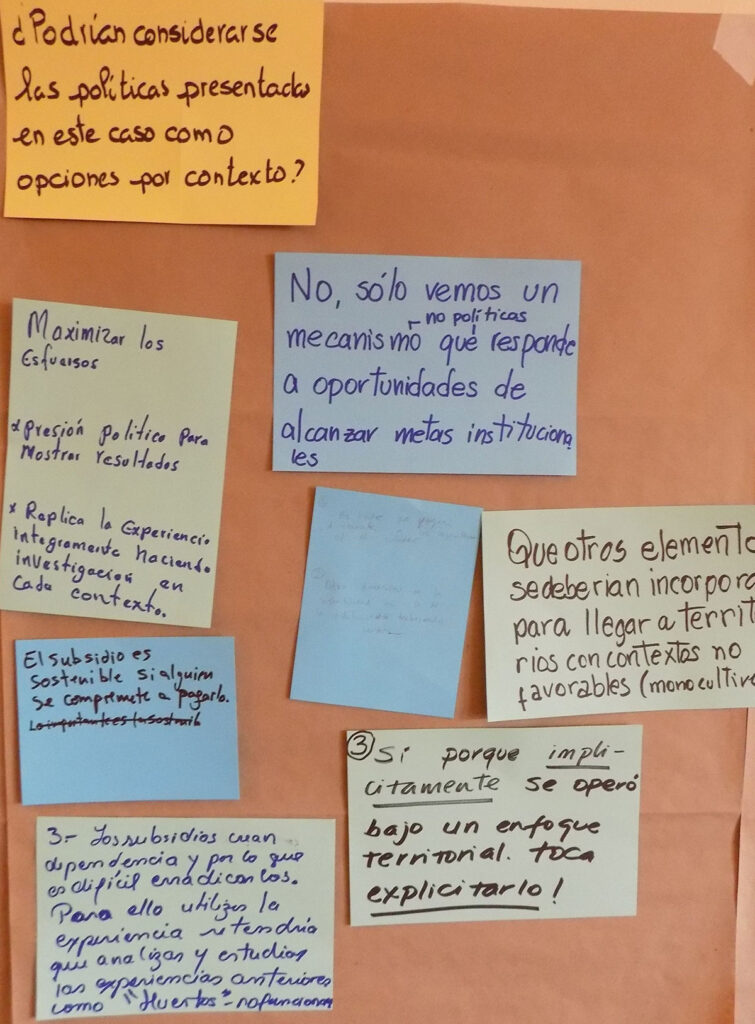 ¿Podrían considerarse
las políticas presentadas
en este caso como
opciones por contexto?
No, sólo vemos un
no políticas
mecanismo que responde
a oportunidades de
alcanzar metas instituciona
les
Maximizar los
Esfuersos
* Presión politica para
Mostrar resultados
* Replica la Experiencia
integramente haciendo
investigación en
Cada contexto.
Que otros elemento
se deberian incorpora
para llegar a territ
rios con contextos no
favorables (monocultivo
El subsidio es
sostenible si alguien
se compromete a pagarlo.
③ Sí porque impli-
citamente se operó
bajo un enfoque
territorial. toca
explicitarlo!
3- Los subsidios crean
dependencia y por lo que
es difícil erradicarlos.
Para ello utilizar la
experiencia se tendría
que analizar y estudiar
las experiencias anteriores
como "Huertos" - no funcionan